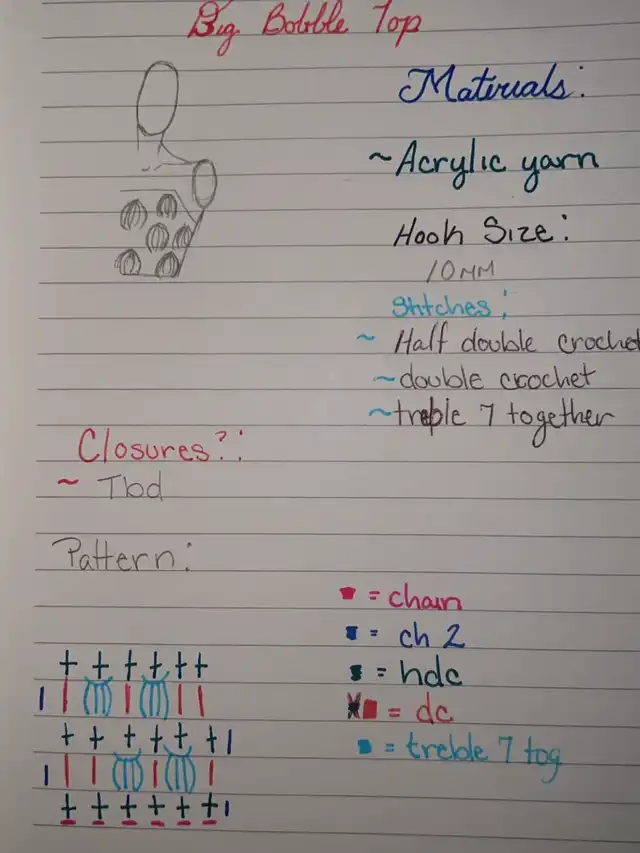 Big Bobble Top
Materials:
~Acrylic yarn
Hook Size:
10MM
Stitches:
~ Half double crochet
~double crochet
~treble 7 together
Closures?:
~ Tbd
Pattern:
= chain
= ch 2
= hdc
= dc
= treble 7 tog